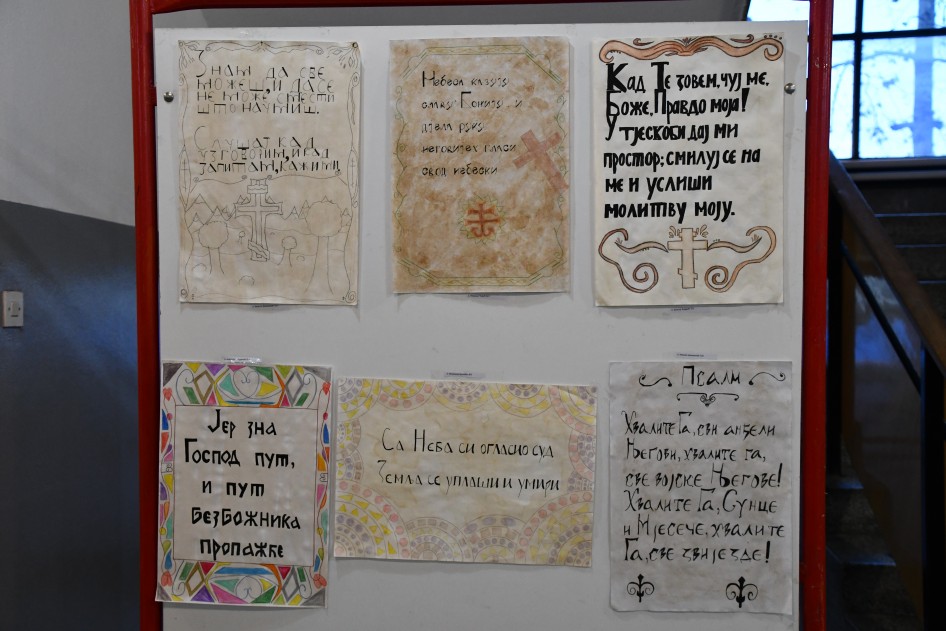 Знам да све
можеш, и да се
не може смести
што наумиш.
Слушат кад
узговорим, и кад
запитам, кажи ми,
Небеса казују
славу Божију, и
дјела руку
гласи
свод небески
Кад Те зовем, чуј ме,
Боже, Правдо моја!
У тјескоби дај ми
простор; смилуј се на
ме и услиши
молитву моју.
Јер зна
Господ пут,
и пут
безбожника
пропашће
Са Неба си огласио суд
Земља се уплаши и умири
Псалми
Хвалите Га, сви анђели
Његови, хвалите га,
све војске Његове!
Хвалите Га, Сунце
и Мјесече, хвалите
Га, све звијезде!